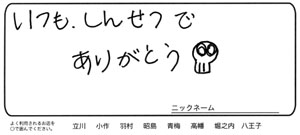 いつも、しんせつで
ありがとう
ニックネーム
よく利用されるお店を
○で囲んでください。
立川 小作 羽村 昭島 青梅 高幡 堀之内 八王子